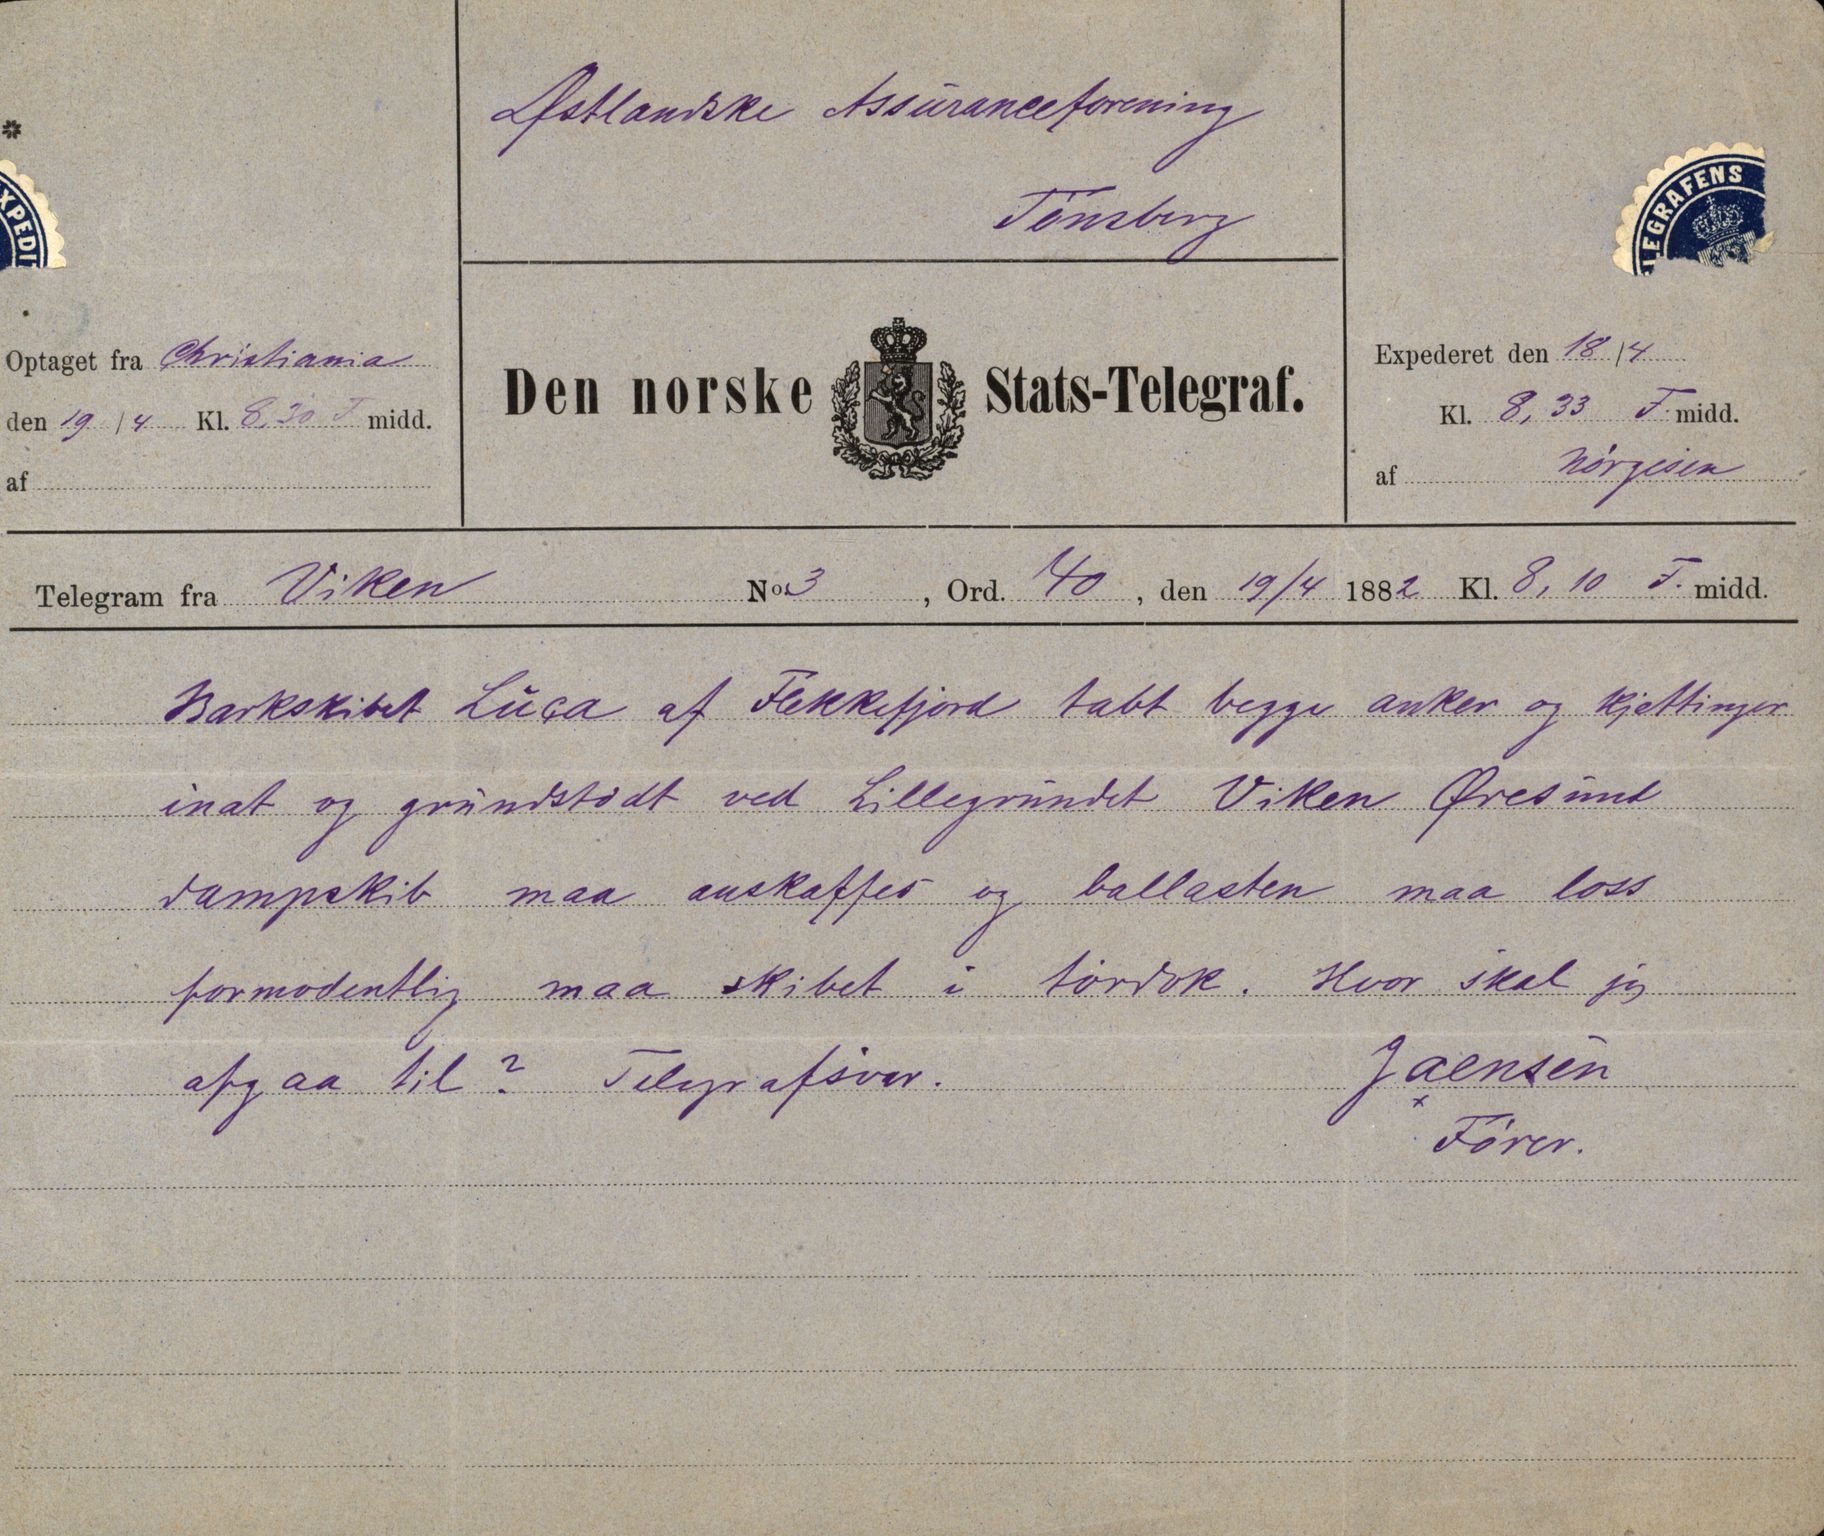 Østlandske Assuranceforening
Tönsberg
*
EXPEDI
LEGRAFENS
Optaget fra Christiania
den 19/4 Kl. 8,30 F midd.
af
Den norske Stats-Telegraf.
Expederet den 18/4
Kl. 8,33 F. midd.
af Nørgesen
Telegram fra Viken No 3, Ord. 40, den 19/4 1882 Kl. 8,10 F. midd.
Barkskibet Luca af Flekkefjord tabt begge anker og kjettinger
inat og grundstödt ved Lillegrundet Viken Øresund
dampskib maa anskaffes og ballasten maa loss
formodentlig maa skibet i tördok. Hvor skal jeg
afgaa til? Telegrafsvar. Jaensen
x
Förer.